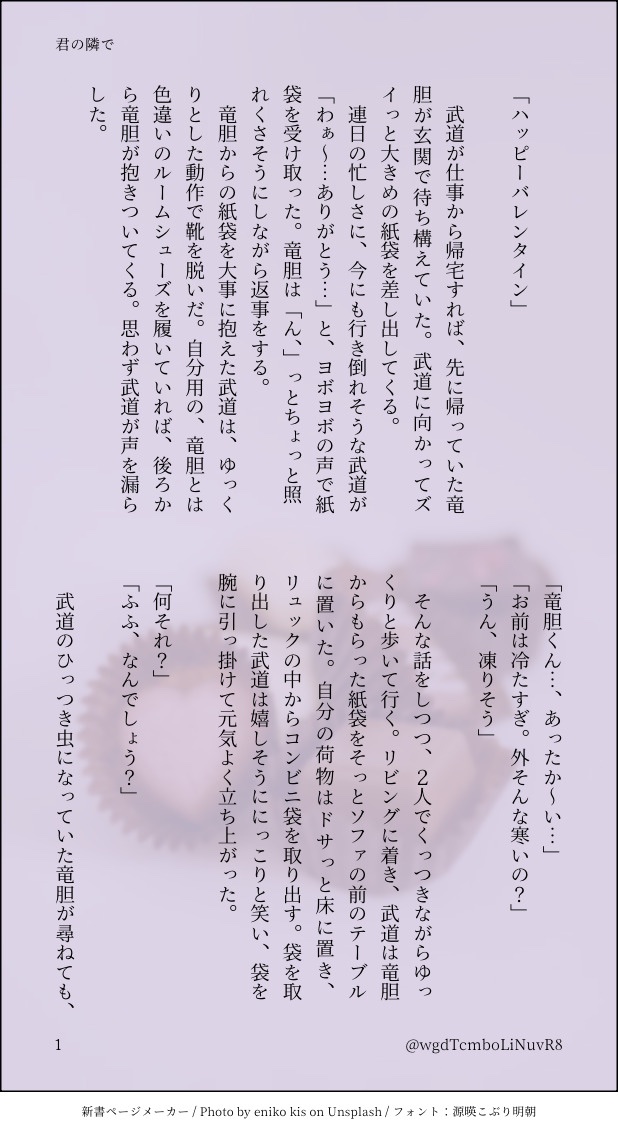 君の隣で
「ハッピーバレンタイン」
　武道が仕事から帰宅すれば、先に帰っていた竜
胆が玄関で待ち構えていた。武道に向かってズ
イっと大きめの紙袋を差し出してくる。
　連日の忙しさに、今にも行き倒れそうな武道が
「わぁ〜…ありがとう…」と、ヨボヨボの声で紙
袋を受け取った。竜胆は「ん、」っとちょっと照
れくさそうにしながら返事をする。
　竜胆からの紙袋を大事に抱えた武道は、ゆっく
りとした動作で靴を脱いだ。自分用の、竜胆とは
色違いのルームシューズを履いていれば、後ろか
ら竜胆が抱きついてくる。思わず武道が声を漏ら
した。
「竜胆くん…、あったか〜い…」
「お前は冷たすぎ。外そんな寒いの？」
「うん、凍りそう」
　そんな話をしつつ、２人でくっつきながらゆっ
くりと歩いて行く。リビングに着き、武道は竜胆
からもらった紙袋をそっとソファの前のテーブル
に置いた。自分の荷物はドサっと床に置き、
リュックの中からコンビニ袋を取り出す。袋を取
り出した武道は嬉しそうににっこりと笑い、袋を
腕に引っ掛けて元気よく立ち上がった。
「何それ？」
「ふふ、なんでしょう？」
　武道のひっつき虫になっていた竜胆が尋ねても、
1
@wgdTcmboLiNuvR8
新書ページメーカー / Photo by eniko kis on Unsplash / フォント：源暎こぶり明朝